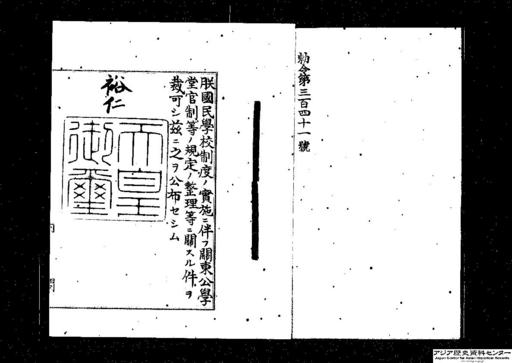 勅令第三百四十一號
朕國民學校制度ノ實施ニ伴フ關東公學
堂官制等ノ規定ノ整理等ニ關スル件ヲ
裁可シ茲ニ之ヲ公布セシム
裕仁
天皇
御璽
内閣
アジア歴史資料センター
Japan Center for Asian Historical Records